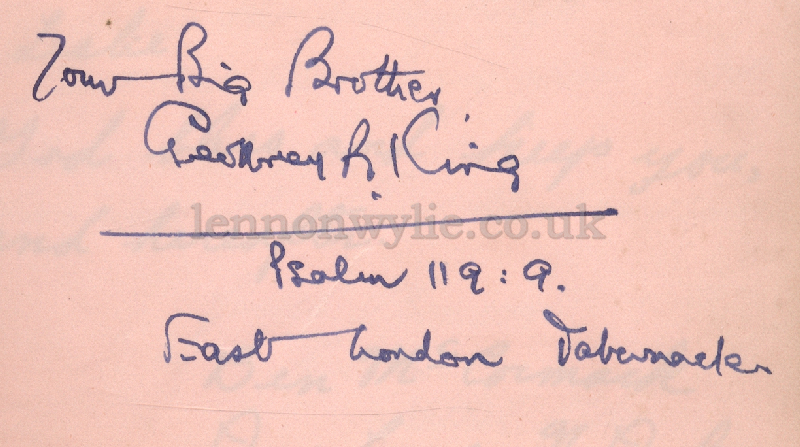 Your Big Brother,
Geoffrey R. King
lennonwylie.co.uk
Psalm 119:9.
East London Tabernacle.